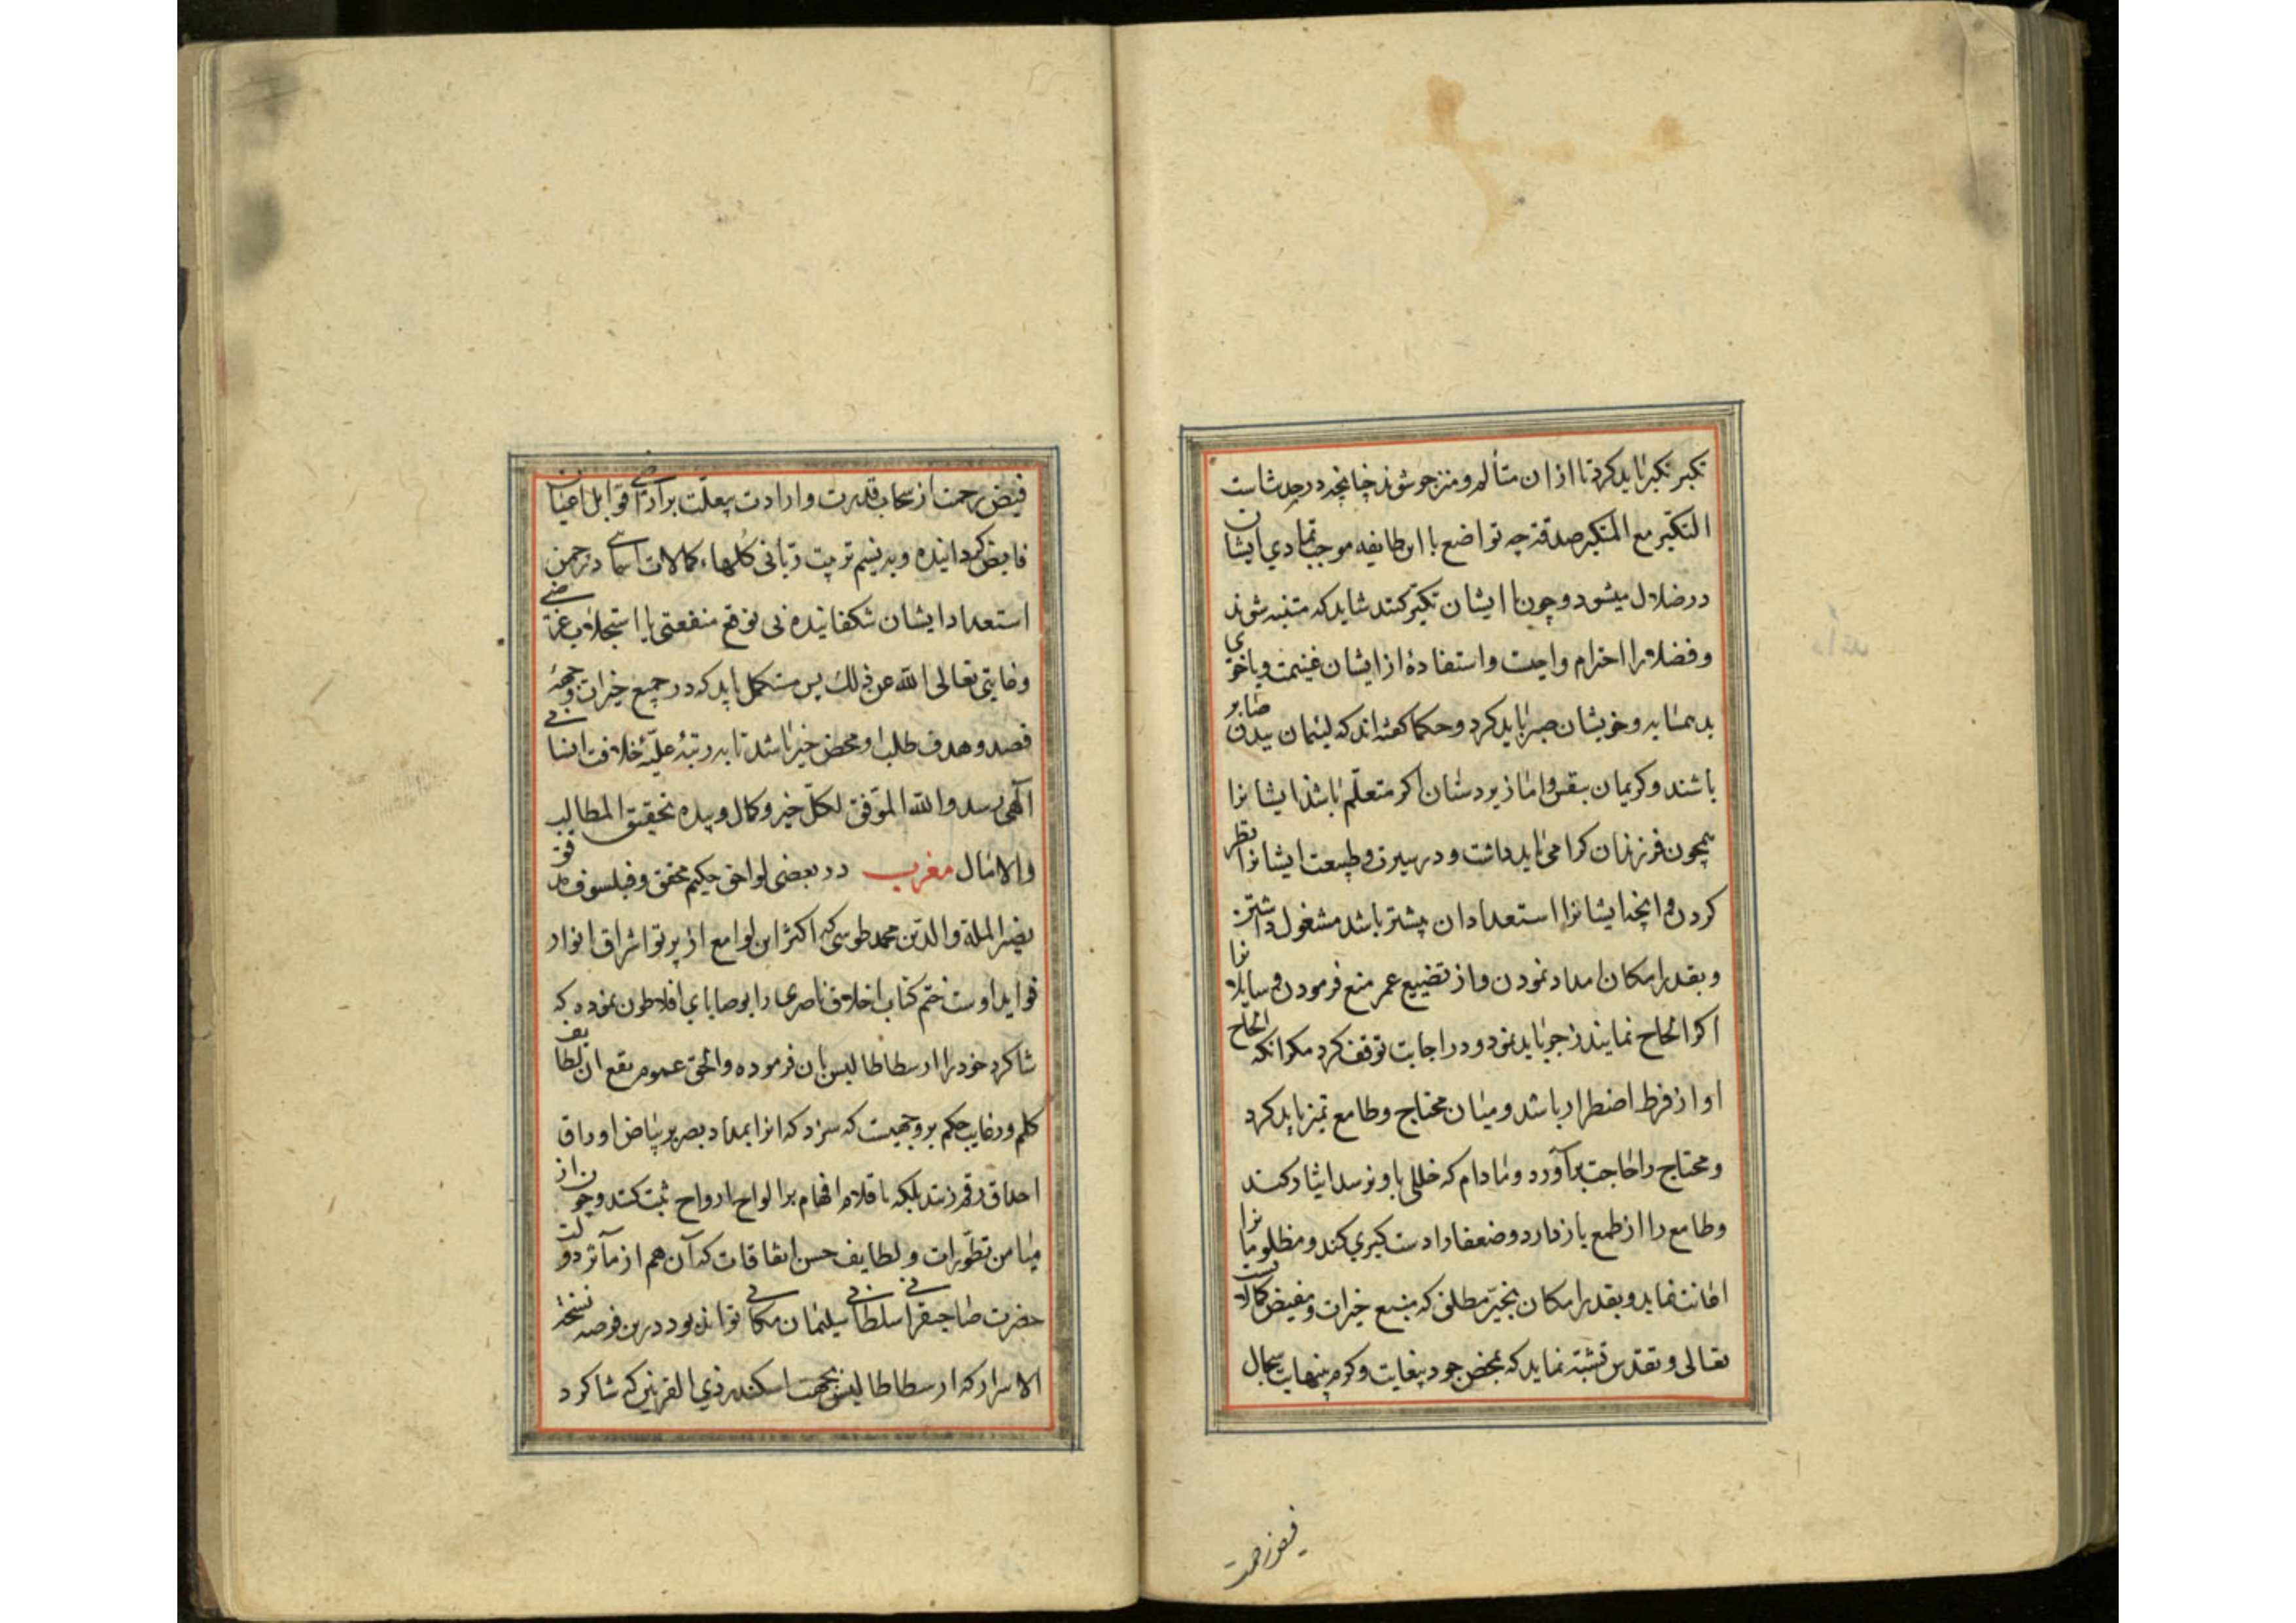 تکبر تکبر باید کرد تا ازان متألم و منزجر شوند چنانچه در حدیث است
التکبر مع المتکبر صدقة چه تواضع با این طایفه موجب تمادی ایشان
در ضلال میشود و چون با ایشان تکبر کنند شاید که متنبه شوند
و فضلا را احترام واجبست و استفادهٔ از ایشان غنیمت و با خوی
بد همسایه و خویشان صبر باید کرد و حکما کفته اند که لئیمان ببدن صابر
باشند و کریمان بنفس و اما زیردستان اکر متعلّم باشد ایشانرا
همچون فرزندان کرامی باید داشت و در سیرت و طبیعت ایشانرا نظر
کردن و آنچه ایشانرا استعداد ان بیشتر باشد مشغول داشتن
و بقدر امکان امداد نمودن و از تضییع عمر منع فرمودن و سایلانرا
اکر الحاح نمایند زجر باید نمود و در اجابت توقف کرد مکر انکه الحاح
او از فرط اضطرار باشد و میان محتاج و طامع تمیز باید کرد
و محتاج را حاجت برآورد و مادام که خللی باو نرسد ایثار کند
و طامع را از طمع باز دارد و ضعفا را دست کیری کند و مظلومانرا
اعانت نماید و بقدر امکان بخیر مطلق که منبع خیرات و مفیض کمالاتست
تعالی و تقدس تشبه نماید که بمحض جود بیغایت و کرم بینهایت سجال
فیض رحمت
فیض رحمت از سحاب قدرت و ارادت بیعلّت بر اراضی قوابل اعیان
فایض کردانیده و به نسیم تربیت ربّانی کلهاء کمالات اسمایی در چمن
استعداد ایشان شکفانیده نی توقع منفعتی یا استجلاب غرضی
و غایتی تعالی الله عن ذلک پس مستکمل باید که در جمیع خیرات وجههٔ
قصد و هدف طلب او محض خیر باشد تا به رتبهٔ علیّهٔ خلافت انسانی
الهی رسد والله الموفق لکلّ خیر و کمال و بیده تحقیق المطالب
والامال مغرب در بعضی لواحق حکیم محقق و فیلسوف مدقق
نصیر الملة والدین محمد طوسی که اکثر این لوامع از پرتو اشراق انوار
فواید اوست ختم کتاب اخلاق ناصری را بوصایای افلاطون نموده که
شاکرد خود را ارسطاطالیس بان فرموده والحق عموم نفع ان لطایف
کلم و رغایب حکم بروجهیست که سزد که انرا بمداد بصر بر بیاض اوراق
احداق رقم زنند بلکه باقلام افهام بر الواح ارواح ثبت کنند و چون از
میامن تطورات و لطایف حسن اتفاقات که آن هم از مآثر دولت
حضرت صاحبقرانی سلطانی سلیمان مکانی تواند بود درین فرصه نسخهٔ
الاسرار که ارسطاطالیس بجهت اسکندر ذی القرنین که شاکرد